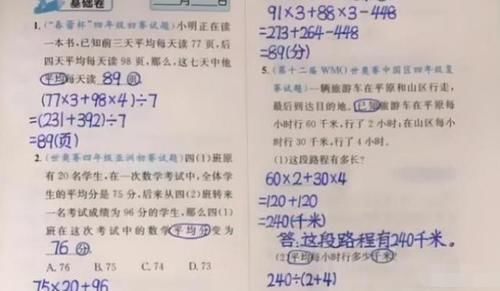 基础卷
月 日
1.(“春蕾杯”四年级初赛试题)小明正在读
一本书,已知前三天平均每天读 77 页,后
四天平均每天读 98 页,那么,这七天中他
平均每天读 89 页.
(77×3+98×4)÷7
=(231+392)÷7
=89(页)
2.(世奥赛四年级亚洲初赛试题)四(1)班原
有 20 名学生,在一次数学考试中,全体学
生的平均分是 75 分,后来从四(2)班转来
一名考试成绩为 96 分的学生,那么四(1)
班在这次考试中的数学平均分变为
76 分.
A. 76 B. 75 C. 74 D. 73
75×20+96
91×3+88×3-448
=273+264-448
=89(分)
5.(第十二届 WMO 世奥赛中国区四年级复
赛试题)一辆旅游车在平原和山区行走,
最后到达目的地.已知旅游车在平原每
小时行 60 千米,行了 2 小时;在山区每小
时行 30 千米,行了 4 小时.
(1)这段路程有多长?
60×2+30×4
=120+120
=240(千米)
答:这段路程有240千米。
(2)平均每小时行多少千米?
240÷(2+4)